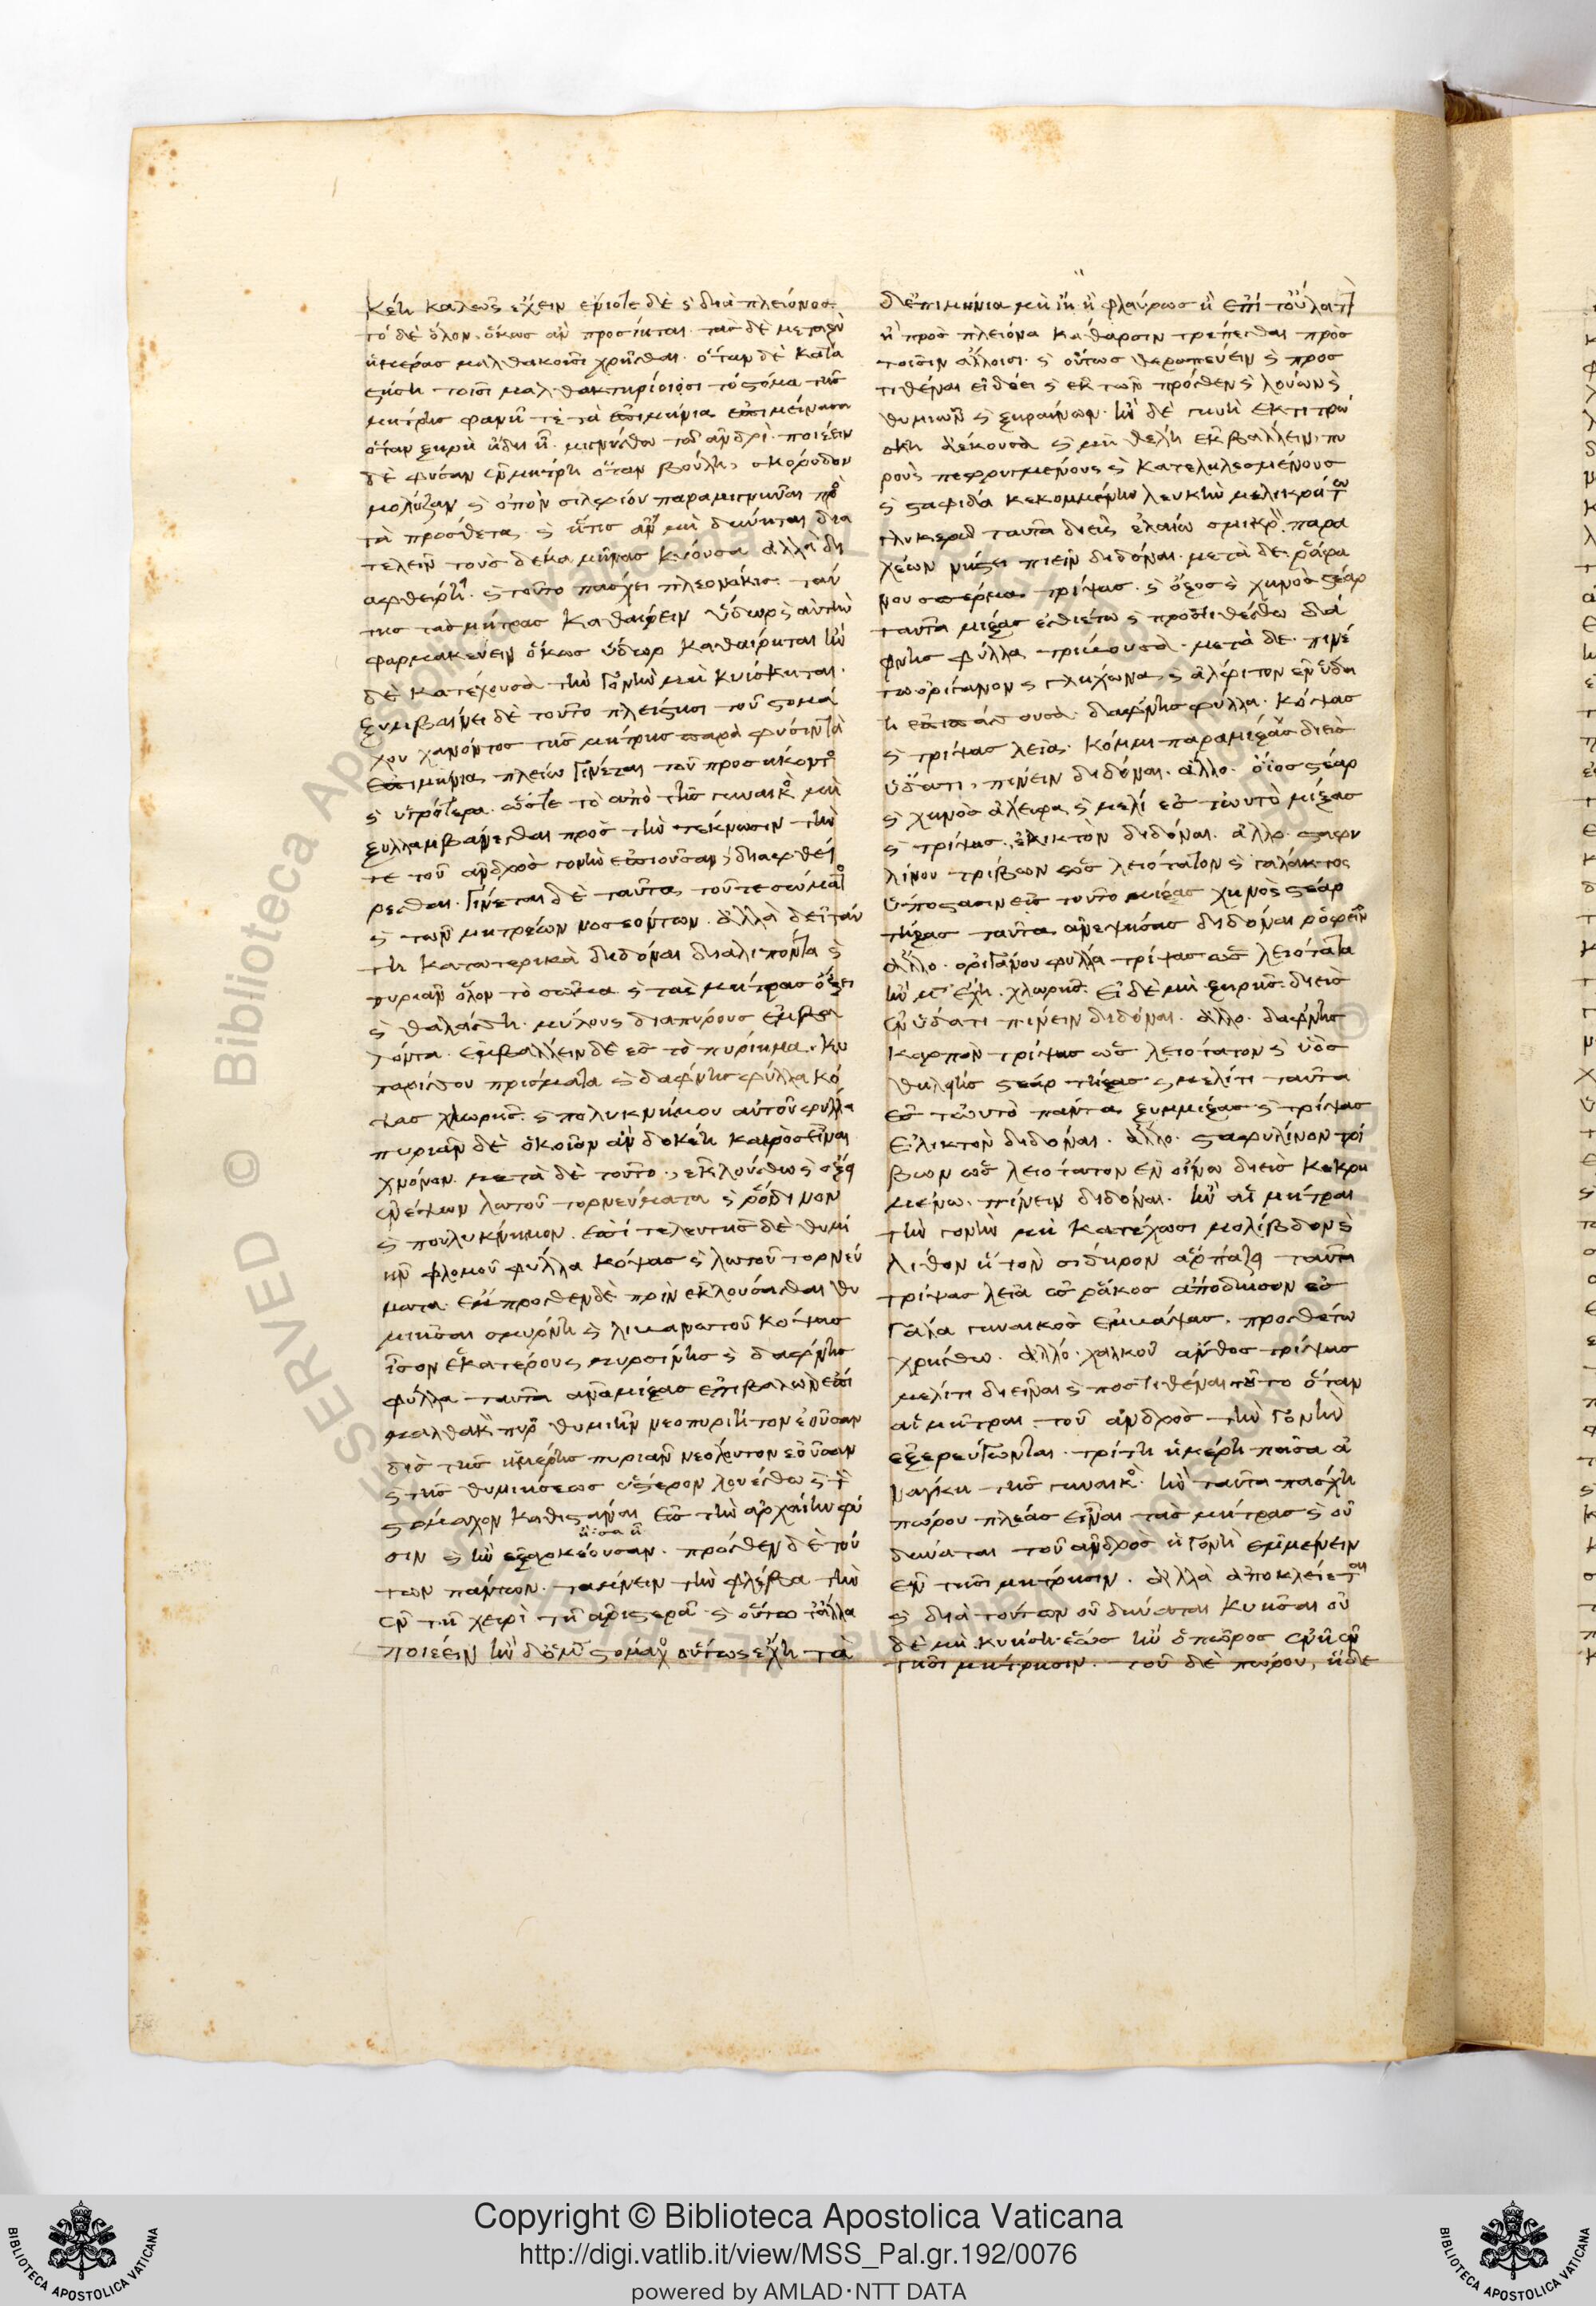 κέη καλῶς ἔχειν ἐνίοτε δὲ ϛ διὰ πλείονος
τὸ δὲ ὅλον. ὅκως ἂν προσίηται. τὰς δὲ μεταξὺ
ἡμέρας μαλθακοῖσι χρῆσθαι. ὅταν δὲ κατα
στήση τοῖσι μαλθακτηρίοισι τὸ στόμα τῆς
μήτρης φανῆ τε τὰ ἐπιμήνια ἐπιμείνασα
ὅταν ξηρὴ ἤδη ἦ. μιγνύσθω τῶ ἀνδρί. ποιέειν
δὲ φύσαν ἐν μήτρη ὅταν βούλη, σκορόδον
μολύζαν ϛ ὀπὸν σιλφίου παραμιγνύναι πρὸ
τὰ προσθετα. ϛ ἥτις ἂν μὴ δύνηται δια
τελεῖν τοὺς δέκα μῆνας κυόουσα ἀλλὰ δι
αφθείρη. ϛ τοῦτο πάσχει πλεονάκις. ταύ
της τὰς μήτρας καθαίρειν ὕδωρ ϛ αὐτὴν
φαρμακεύειν ὅκως ὕδωρ καθαίρηται ἢν
δὲ κατέχουσα τὴν γονὴν μὴ κυίσκηται.
ξυμβαίνει δὲ τοῦτο πλείστησι τοῦ στομά
χου χανόντος τῆς μήτρης παρὰ φύσιν τὰ
ἐπιμήνια πλείω γίνεται τοῦ προσήκοντος
ϛ ὑγρότερα. ὥστε τὸ ἀπὸ τῆς γυναικὸς μὴ
ξυλλαμβάνεσθαι πρὸς τὴν τέκνωσιν τήν
τε τοῦ ἀνδρὸς γονὴν ἐπιοῦσαν, διαφθεί
ρεσθαι. γίνεται δὲ ταῦτα τοῦ τε σώματος
ϛ τῶν μητρέων νοσεόντων. ἀλλὰ δεῖ ταύ
τη κατωτερικὰ διδόναι διαλιπόντα ϛ
πυριᾶν ὅλον τὸ σῶμα ϛ τὰς μήτρας ὄξει
ϛ θαλάσση. μύλους διαπύρους ἐμβα
λόντα. ἐμβαλλειν δὲ ἐς τὸ πυρίημα. κυ
παρίσσου πρίσματα ϛ δάφνης φύλλα κό
ψας χλωρῆς. ϛ πολυκνήμου αὐτοῦ φύλλα
πυριᾶν δὲ ὁκοῖον ἂν δοκέη καιρὸς εἶναι
χρόνον. μετὰ δὲ τοῦτο, ἐκλούσθω ϛ ὄξος
ἐνέψων λωτοῦ τορνεύματα ϛ ῥόδινον
ϛ πουλυκνημον. ἐπὶ τελευτῆς δὲ θυμι
ῆν φλομοῦ φύλλα κόψας ϛ λωτοῦ τορνεύ
ματα. ἔμπροσθεν δὲ πρὶν ἐκλούσασθαι θυ
μιῆσαι σμύρνη ϛ λιβανωτοῦ κόψας
ἴσον ἑκατέρους μυρσίνης ϛ δάφνης
φύλλα ταῦτα ἀναμίξας ἐπιβαλὼν ἐπὶ
μαλθακ πυρ θυμιῆν νεοπυρίητον ἐοῦσαν
δὶς τῆς ἡμέρης πυριᾶν νεόλουτον ἐοῦσαν
ϛ τῆς θυμιήσεως ὕστερον λουέσθω ϛ τ
στόμαχον καθιστάναι ἐς τὴν ἀρχαίην φύ
σιν ϛ ἢν ἐξαρκέουσαν. πρόσθεν δὲ τού
των πάντων. ταμνειν τὴν φλέβα τὴν
ἐν τῆ χειρὶ τῆ ἀριστερᾶ. ϛ οὕτω τἄλλα
ποιέειν ἢν δὲ μ στομαχ οὕτως ἔχη τὰ
δ' ἐπιμήνια μὴ ἴη ἢ φλαύρως ἢ ἐπὶ τοὔλαττ
ἢ πρὸς πλείονα κάθαρσιν τρέπεσθαι πρὸς
τοῖσιν ἄλλοισι. ϛ οὕτως θεραπεύειν ϛ προς
τιθέναι εἰ δέει ϛ ἐκ τῶν πρόσθεν ϛ λούων ϛ
θυμιῶν ϛ ξηραίνων. ἢν δὲ γυνὴ ἐκτιτρώ
σκη ἀέκουσα ϛ μὴ θέλη ἐκβάλλειν, πυ
ροὺς πεφρυγμένους ϛ κατεληλεσμένους
ϛ σταφίδα κεκομμένην λευκὴν μελικρήτω
γλυκερῶ ταῦτα διεὶς ἐλαίω σμικρὸ παρα
χέων νήστει πιεῖν διδόναι. μετὰ δὲ ῥαφά
νου σπέρμα τρίψας. ϛ ὄξος ϛ χηνὸς στέαρ
ταῦτα μίξας ἐσθιέτω ϛ προστιθέσθω δά
φνης φύλλα τρίψουσα. μετὰ δὲ πινέ
τω ὀρίγανον ϛ γλήχωνα ϛ ἄλφιτον ἐν ὕδα
τι ἐπιπάσσουσα. δάφνης φύλλα. κόψας
ϛ τρίψας λεῖα. κόμμι παραμίξας διεὶς
ὕδατι, πίνειν διδόναι. ἄλλο. ὄϊος στέαρ
ϛ χηνὸς ἄλειφα ϛ μέλι ἐς τωυτὸ μίξας
ϛ τρίψας, ἐλικτὸν διδόναι. ἄλλο σταφυ
λίνου τρίβων ὡς λειότατον ϛ γάλακτος
ὑπόστασιν εἰς τοῦτο μίξας χηνὸς στέαρ
τήξας ταῦτα ἀνεψήσας διδόναι ῥοφεῖν
ἄλλο. ὀριγάνου φύλλα τρίψας ὡς λειότατα
ἢν μ ἔχη. χλωρῆς. εἰ δὲ μὴ ξηρῆς. διεὶς
ἐν ὕδατι πίνειν διδόναι. ἄλλο. δάφνης
καρπὸν τρίψας ὡς λειότατον ϛ ὑὸς
θηλείης στέαρ τήξας ϛ μέλιτι ταῦτα
ἐς τωυτὸ πάντα ξυμμίξας ϛ τρίψας
ἐλικτὸν διδόναι. ἄλλο. σταφυλῖνον τρί
βων ὡς λειότατον ἐν οἴνω διεὶς κεκρη
μένω. πίνειν διδόναι. ἢν αἱ μῆτραι
τὴν γονὴν μὴ κατέχωσι μολίβδον ϛ
λίθον ἣ τὸν σίδηρον ἁρπάζει ταῦτα
τρίψας λεῖα ἐς ῥάκος ἀπόδησον ἐς
γάλα γυναικὸς ἐμβάψας. προσθέτω
χρήσθω. ἄλλο. χαλκοῦ ἄνθος τρίψας
μέλιτι διεῖναι ϛ ποστιθέναι τοῦτο ὅταν
αἱ μῆτραι τοῦ ἀνδρὸς τὴν γονὴν
ἐξερεύγωνται. τρίτη ἡμέρη πᾶσα ἀ
νάγκη τῆς γυναικὸς. ἢν ταῦτα πάσχη
πώρου πλέας εἶναι τὰς μήτρας ϛ οὐ
δύναται τοῦ ἀνδρὸς ἡ γονὴ ἐμμένειν
ἐν τῆσι μήτρησιν. ἀλλὰ ἀποκλείεται
ϛ διὰ τούτων οὐ δύναται κυῆσαι οὐ
δὲ μὴ κυήση. ἕως ἢν ὁ πῶρος ἐνῆ ἐν
τῆσι μήτρησιν. τοῦ δὲ πώρου, ἥδε
Copyright © Biblioteca Apostolica Vaticana
http://digi.vatlib.it/view/MSS_Pal.gr.192/0076
powered by AMLAD·NTT DATA